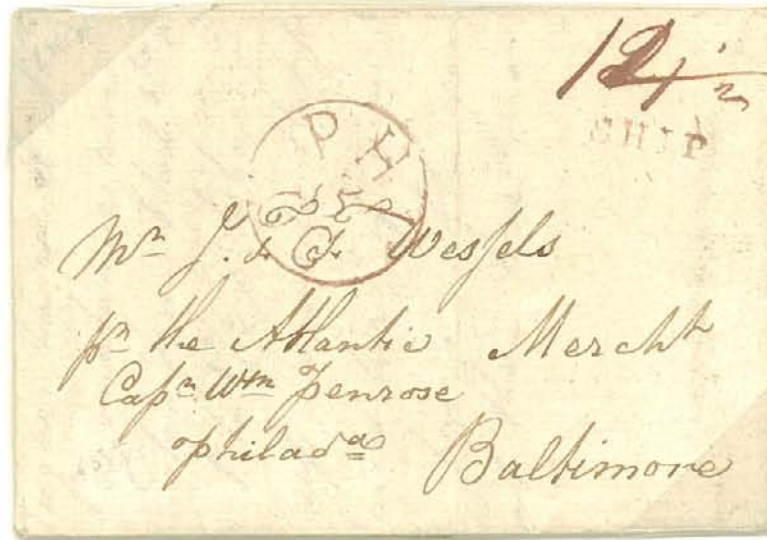 12 1/2
SHIP
PH
Mr J. & C. Wessels
pr the Atlantic Mercht
Capn Wm Penrose
Philada Baltimore